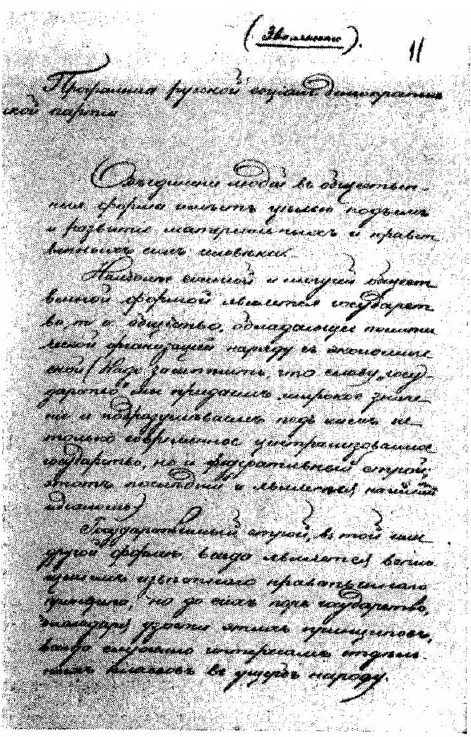 11
Программа русской социалъ демократич
ской партіи
Объединеніе людей въ обществен-
ныя формы имѣетъ цѣлью подъемъ
и развитіе матеріальныхъ и нравст
венныхъ силъ человѣка.
Наиболѣе сильной и могучей общест
венной формой является государст
во, т. е. общество, обладающее полити
ческой организацией наряду съ экономиче
ской (Надо замѣтить, что слову „госу-
дарство" мы придаемъ широкое значе
ніе и подразумѣваемъ подъ нимъ не
только современное централизованное
государство, но и федеративный строй;
этотъ послѣдній и является нашимъ
идеаломъ)
Государственный строй, въ той или
другой формѣ, всегда является вопло
щеніемъ нравственнаго
принципа, но до сихъ поръ государство,
благодаря этихъ принциповъ,
всегда служило интересамъ отдѣль-
ныхъ классовъ въ ущербъ народу.